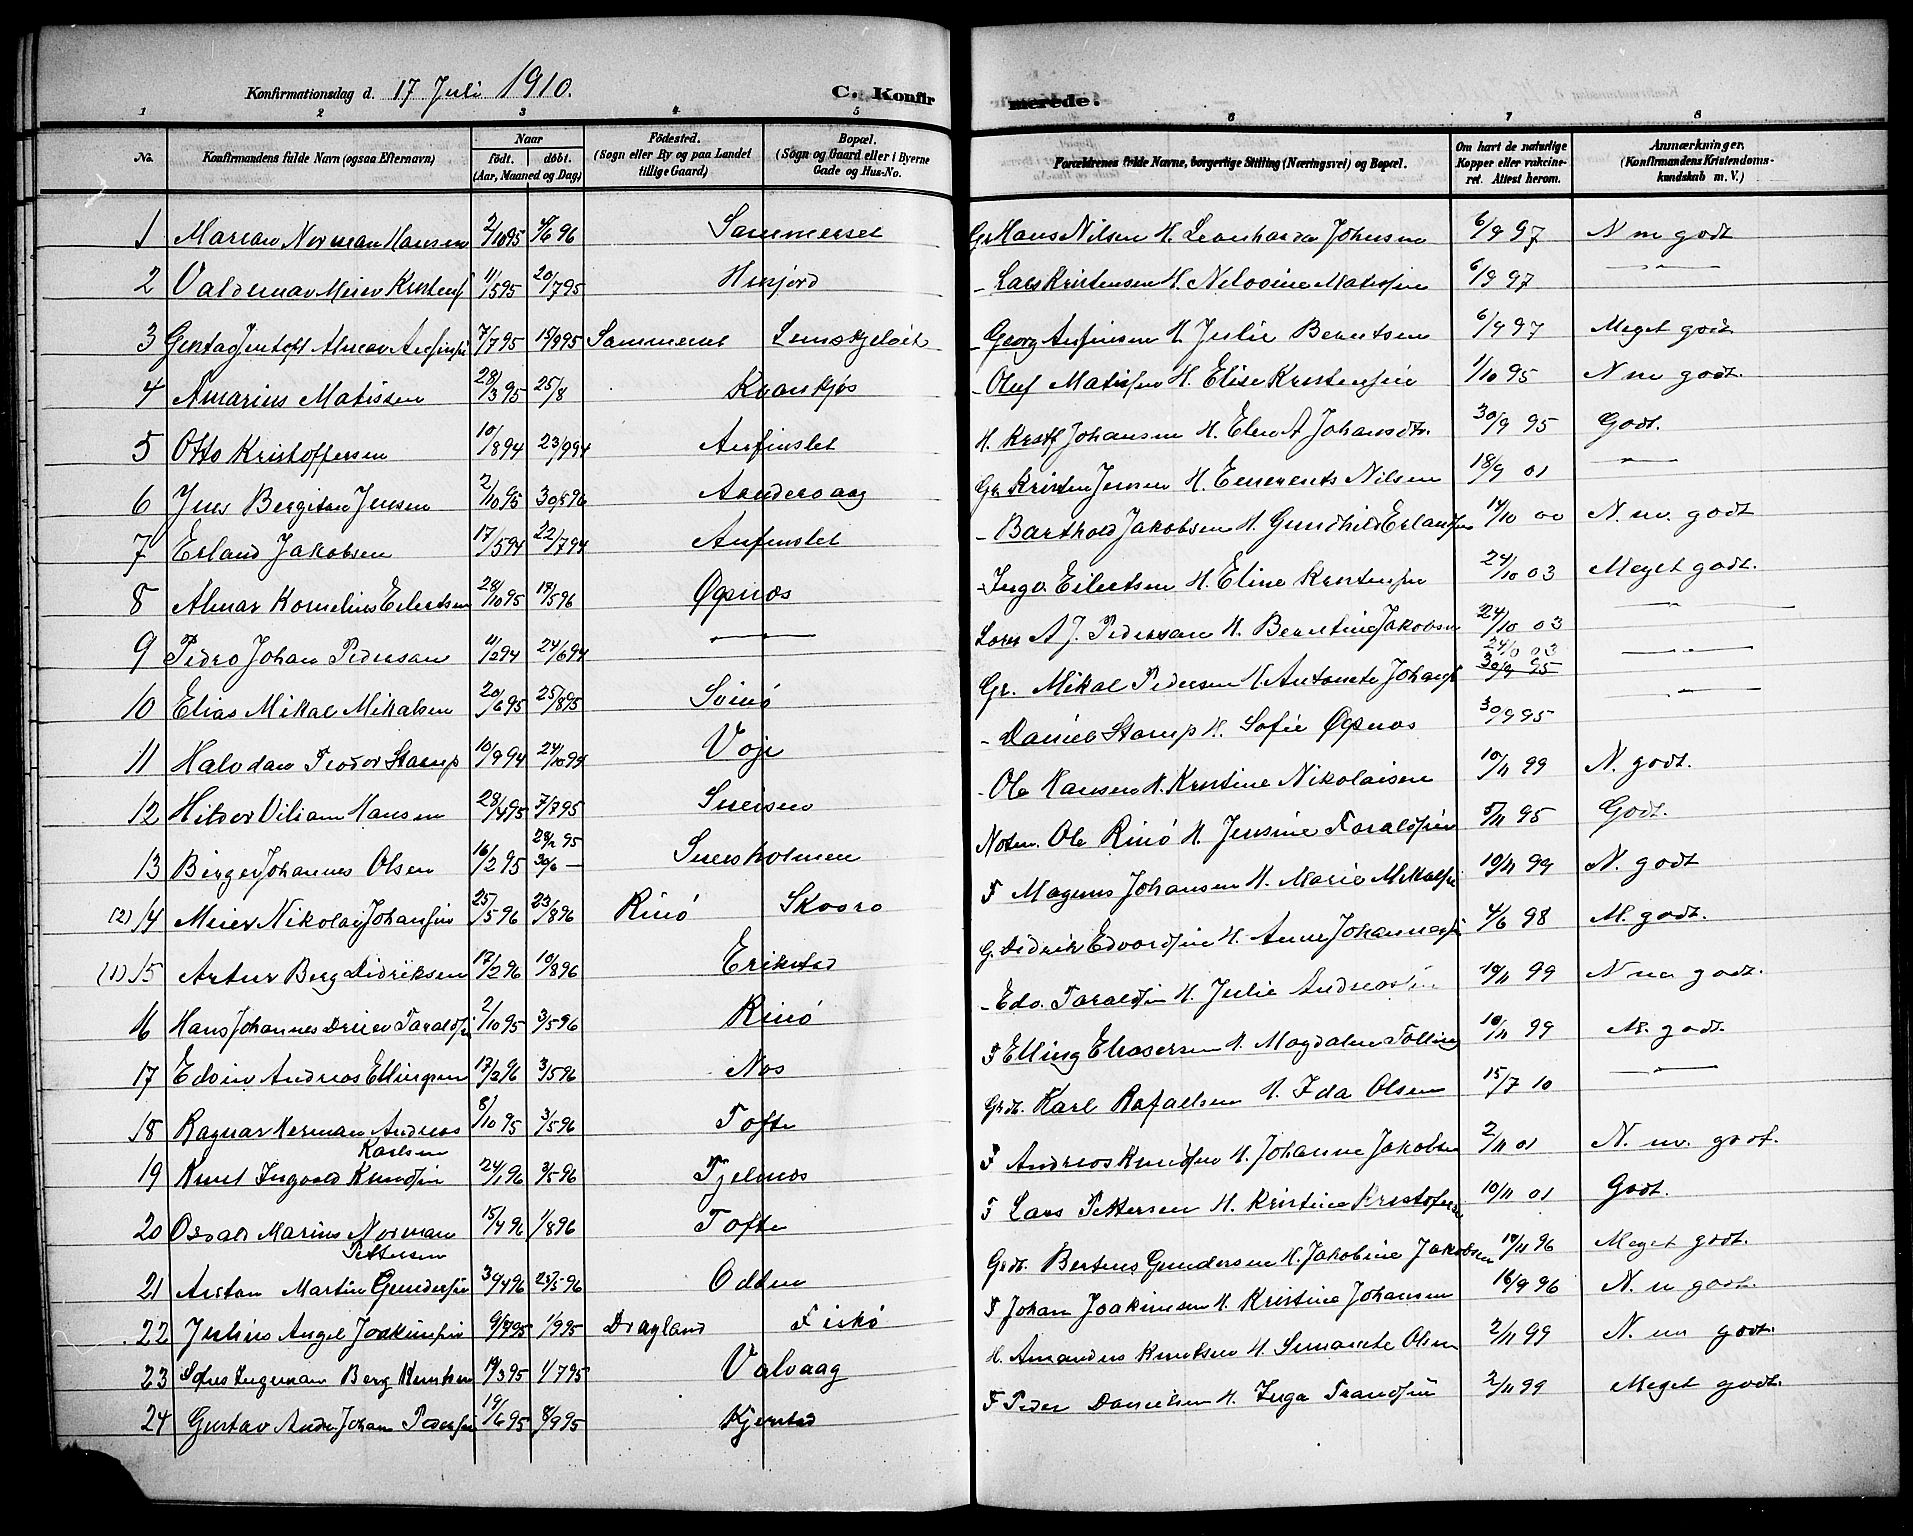 Konfirmationsdag d. 17 Juli 1910.
C. Konfir
merede.
1 2 3 4 5 6 7 8
No. Konfirmandens fulde Navn (ogsaa Efternavn) Naar født. døbt. (Aar, Maaned og Dag) Fødested. (Sogn eller By og paa Landet tillige Gaard) Bopæl. (Sogn og Gaard eller i Byerne Gade og Hus-No.
Forældrenes fulde Navne, borgerlige Stilling (Næringsvei) og Bopæl. Om havt de naturlige Kopper eller vakcineret. Attest herom. Anmærkninger, (Konfirmandens Kristendomskundskab m. V.)
1 Marcan Norman Hansen 2/10 95 /6 96 Sammerset Gr Hans Nilsen H. Leonharda Johnsen 6/9 97 N m godt
2 Valdemar Meier Kristens 11/5 95 20/7 95 Hinjord - Lars Kristensen H. Nilovine Matisen 6/9 97 — " —
3 Almar 7/7 95 15/9 95 Sammerset - Georg Anfinsen H. Julie Berntsen 6/9 97 Meget godt
4 Amarius Matissen 28/3 95 25/8 Kvankjøs - Oluf Matisen H. Elise Kristensen 1/10 95 N m godt.
5 Otto Kristoffersen 10/8 94 23/9 94 Anfinslet H. Kristf Johansen H. Elen A Johansdtr. 30/9 95 Godt.
6 Jens Bergiton Jensen 2/10 95 30/8 96 Aandervaag Gr Kristen Jensen H. Nilsen 18/9 01 — " —
7 Erland Jakobsen 17/5 94 22/7 94 Anfinslet - Barthold Jakobsen H. Gundhild Erlands 14/10 00 N. m. godt
8 Almar Kornelius Eilertsen 28/10 95 18/5 96 Øgsnes - Ingv. Eilertsen H. Eline Kristensen 24/10 03 Meget godt.
9 Pedro Johan Pedersen 11/2 94 24/6 94 — " — A J. Pedersen H. Berntine Jakobsen 24/10 03 — " —
10 Elias Mikal Mikalsen 20/6 95 25/8 95 Svinø Gr. Mikal Pedersen H. Antonete Johans 24/10 03 30/9 95 — " —
11 Halvdan Teodor Starup 10/9 94 24/10 94 Voje - Daniel Starup H. Sofie Øgsnes 30/9 95 — " —
12 Hilder Viliam Hansen 28/4 95 7/7 95 Sneisen - Ole Hansen H. Kristine Nikolaisen 10/11 99 N. godt.
13 Birger Johannes Olsen 16/2 95 28/2 95 30/6 — Sneisholmen Noten. Ole Rinø H. Jensine Taraldsen 5/11 95 Godt.
(2) 14 Meier Nikolai Johansen 25/5 96 23/8 96 Rinø Skoaro F Magnus Johansen H. Marie Mikalsen 10/11 99 N. godt
(1) 15 Artur Berg Didriksen 17/2 96 10/8 96 Erikstad G. Didrik Edvardsen H. Anne Johannes 4/6 98 M. godt.
16 Hans Johannes Taralds 2/10 95 3/5 96 Rinø - Edv. Taraldsen H. Julie Andreas 10/11 99 N m godt.
17 Edvin Andreas Ellingsen 17/2 96 3/5 96 Nes F Elling Eliasersen H. Magdalene Tolling 10/11 99 M. godt.
18 Ragnar Herman Andreas Karlsen 8/10 95 3/5 96 Tofte Grdb. Karl Rafaelsen H. Ida Olsen 15/7 10 — " —
19 Knut Ingvald Knudsen 24/1 96 3/5 96 Tjelnes F Andreas Knudsen H. Johanne Jakobsen 2/11 01 N. m. godt.
20 Osvald Marius Norman Pettersen 15/4 96 1/8 96 Tofte F Lars Pettersen H. Kristine Kristofersen 10/11 01 Godt.
21 Anton Martin Gundersen 30/4 96 25/5 96 Odden Grdb. Bertius Gundersen H. Jakobine Jakobsen 10/11 96 Meget godt.
22 Julius Angel Joakimsen 9/4 95 1/9 95 Dragland Fiskø F Johan Joakimsen H. Kristine Johansen 16/9 96 N. m godt.
23 Sofus Ingeman Berg Knutsen 19/3 95 1/7 95 Valvaag H. Amandus Knutsen H. Olsen 2/11 99 N. m godt.
24 Gustav Johan Pedersen 19/6 95 8/9 95 Kjerstad F Peder Danielsen H. Inga Trandsen 2/11 99 Meget godt.